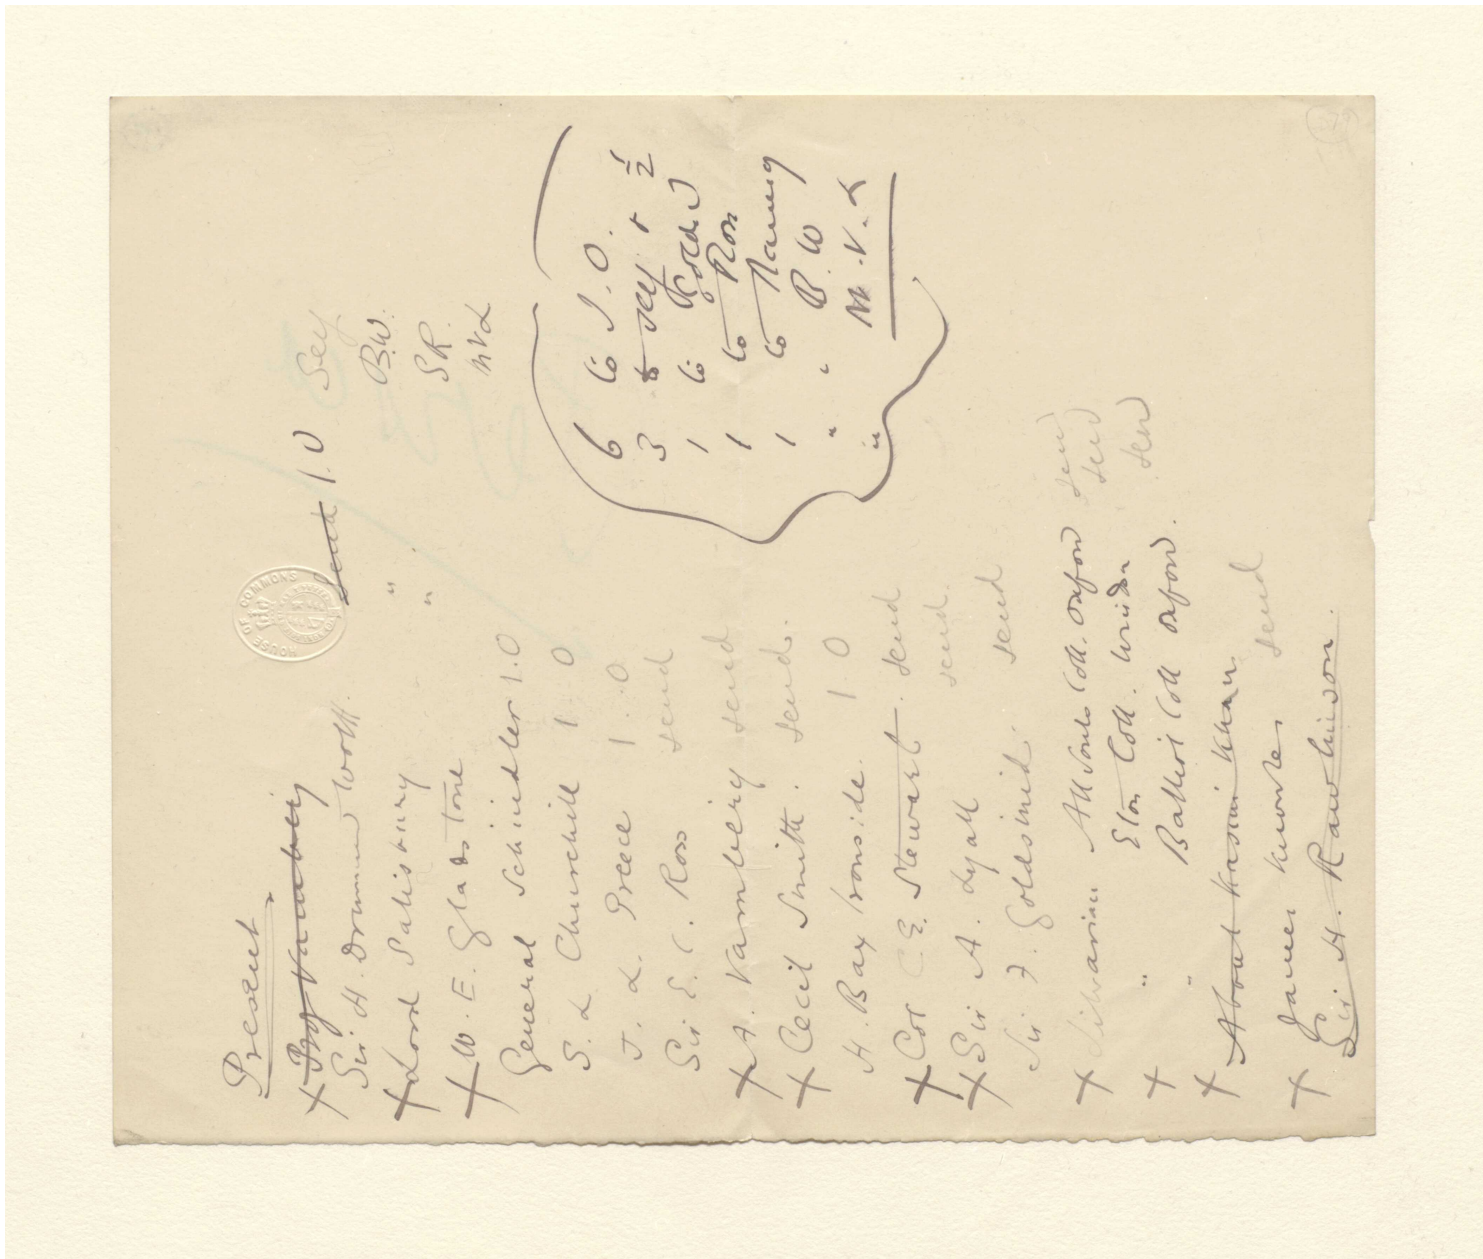 Present
Prof Vambery
Sir H. Drummond Wolff. send 1.0 Self
Lord Salisbury " B.W.
W. E. Gladstone " S.R.
General Schindler 1.0
S. L Churchill 1 0
J. L. Preece 1.0
Sir E. C. Ross send
A. Vambery send
Cecil Smith. send.
H. Bax Ironside. 1 0
Col C. E. Stewart. send
Sir A. Lyall send.
Sir F. Goldsmid. send
Librarian All Souls Coll. Oxford send
" Eton Coll. Windsor send
" Balliol Coll Oxford. send
About Kasim Khan
James Knowles send
Sir H. Rawlinson.
6 to I.O.
3 to self + 1/2
1 to
1 to Ross
1 to
" " B.W
" N.V.L
HOUSE OF COMMONS